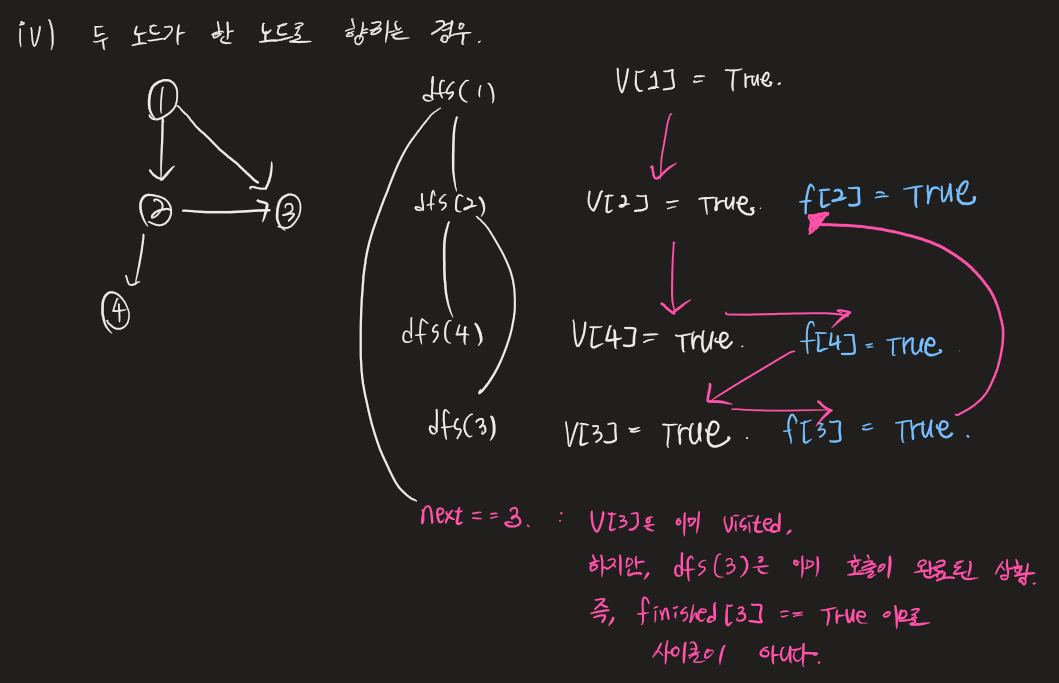 iv) 두 노드가 한 노드로 향하는 경우.
1
2
3
4
dfs(1)
dfs(2)
dfs(4)
dfs(3)
V[1] = True.
V[2] = True. f[2] = True
V[4] = True. f[4] = True.
V[3] = True. f[3] = True.
next == 3. : V[3]은 이미 visited,
하지만, dfs(3)은 이미 호출이 완료된 상황.
즉, finished[3] == True 이므로
사이클이 아니다.